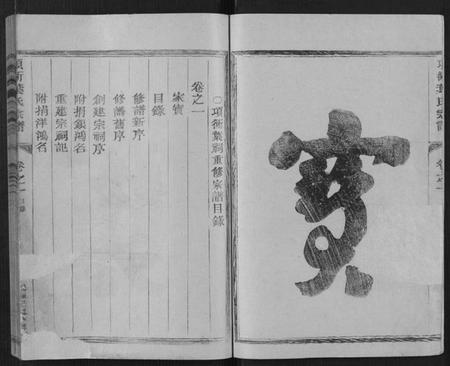 寶
項衕葉氏宗譜
卷之一
〇項衕葉祠重修家譜目錄
卷之一
家寶
目錄
修譜新序
修譜舊序
創建宗祠序
附捐銀鴻名
重建宗祠記
附捐洋鴻名
項衕葉氏宗譜
卷之一
目錄